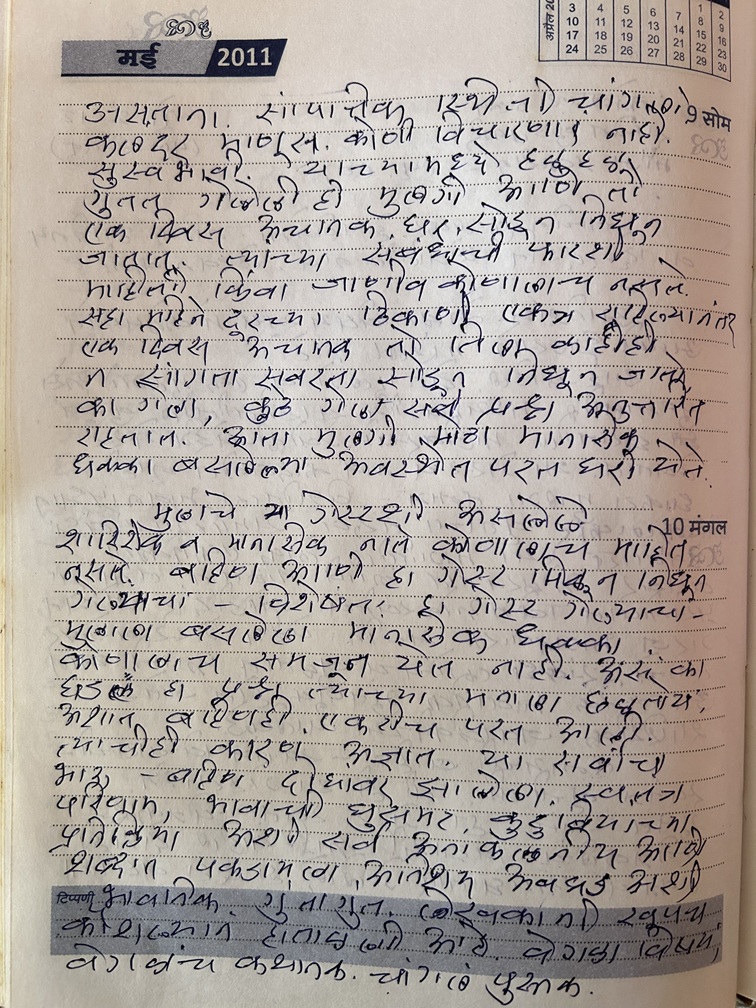 अप्रैल 20
3 4 5 6 7 1 2
10 11 12 13 14 8 9
17 18 19 20 21 15 16
24 25 26 27 28 22 23
29 30
मई 2011
असताना. सांपात्तिक स्थिती चांगली
9 सोम
कलंदर माणूस. कोणी विचारणारं नाही.
सुस्वभावी. याच्यामध्ये हळुहळु
गुंतत गेलेली ही मुलगी आणि तो
एक दिवस अचानक घर सोडून निघून
जातात. त्यांच्या संबंधाची फारशी
माहिती किंवा जाणीव कोणालाच नसते.
सहा महिने दूरच्या ठिकाणी एकत्र राहिल्यानंतर
एक दिवस अचानक तो तिला काहीही
न सांगता सवरता सोडून निघून जातो
का गेला, कुठे गेला सर्व प्रश्न अनुत्तरित
राहतात. आता मुलगी मोठा मानसिक
धक्का बसलेल्या अवस्थेत परत घरी येते.
मुलाचे या गेस्टशी असलेले
10 मंगल
शारिरीक व मानसिक नाते कोणालाच माहित
नसते. बहिण आणि हा गेस्ट मिळून निघून
गेल्याचा - विशेषतः हा गेस्ट गेल्याचा -
मुलाला बसलेला मानसिक धक्का
कोणालाच समजून येत नाही. असं का
घडलं हा प्रश्न त्याच्या मनाला छळतोय.
अशात बहिणही एकटीच परत आली.
त्याचीही कारण अज्ञात. या सर्वांचा
भाऊ - बहिण दोघांवर झालेला स्वतंत्र
परिणाम, भावाची घुसमट, कुटुंबियांच्या
प्रतिक्रिया अशी सर्व अनाकलनीय आणि
शब्दात पकडायला अतिशय अवघड अशी
टिप्पणी भावनिक गुंतागुंत. लेखकानी खूपच
कौशल्याने हाताळली आहे. वेगळा विषय,
वेगळंच कथानक. चांगलं पुस्तक.